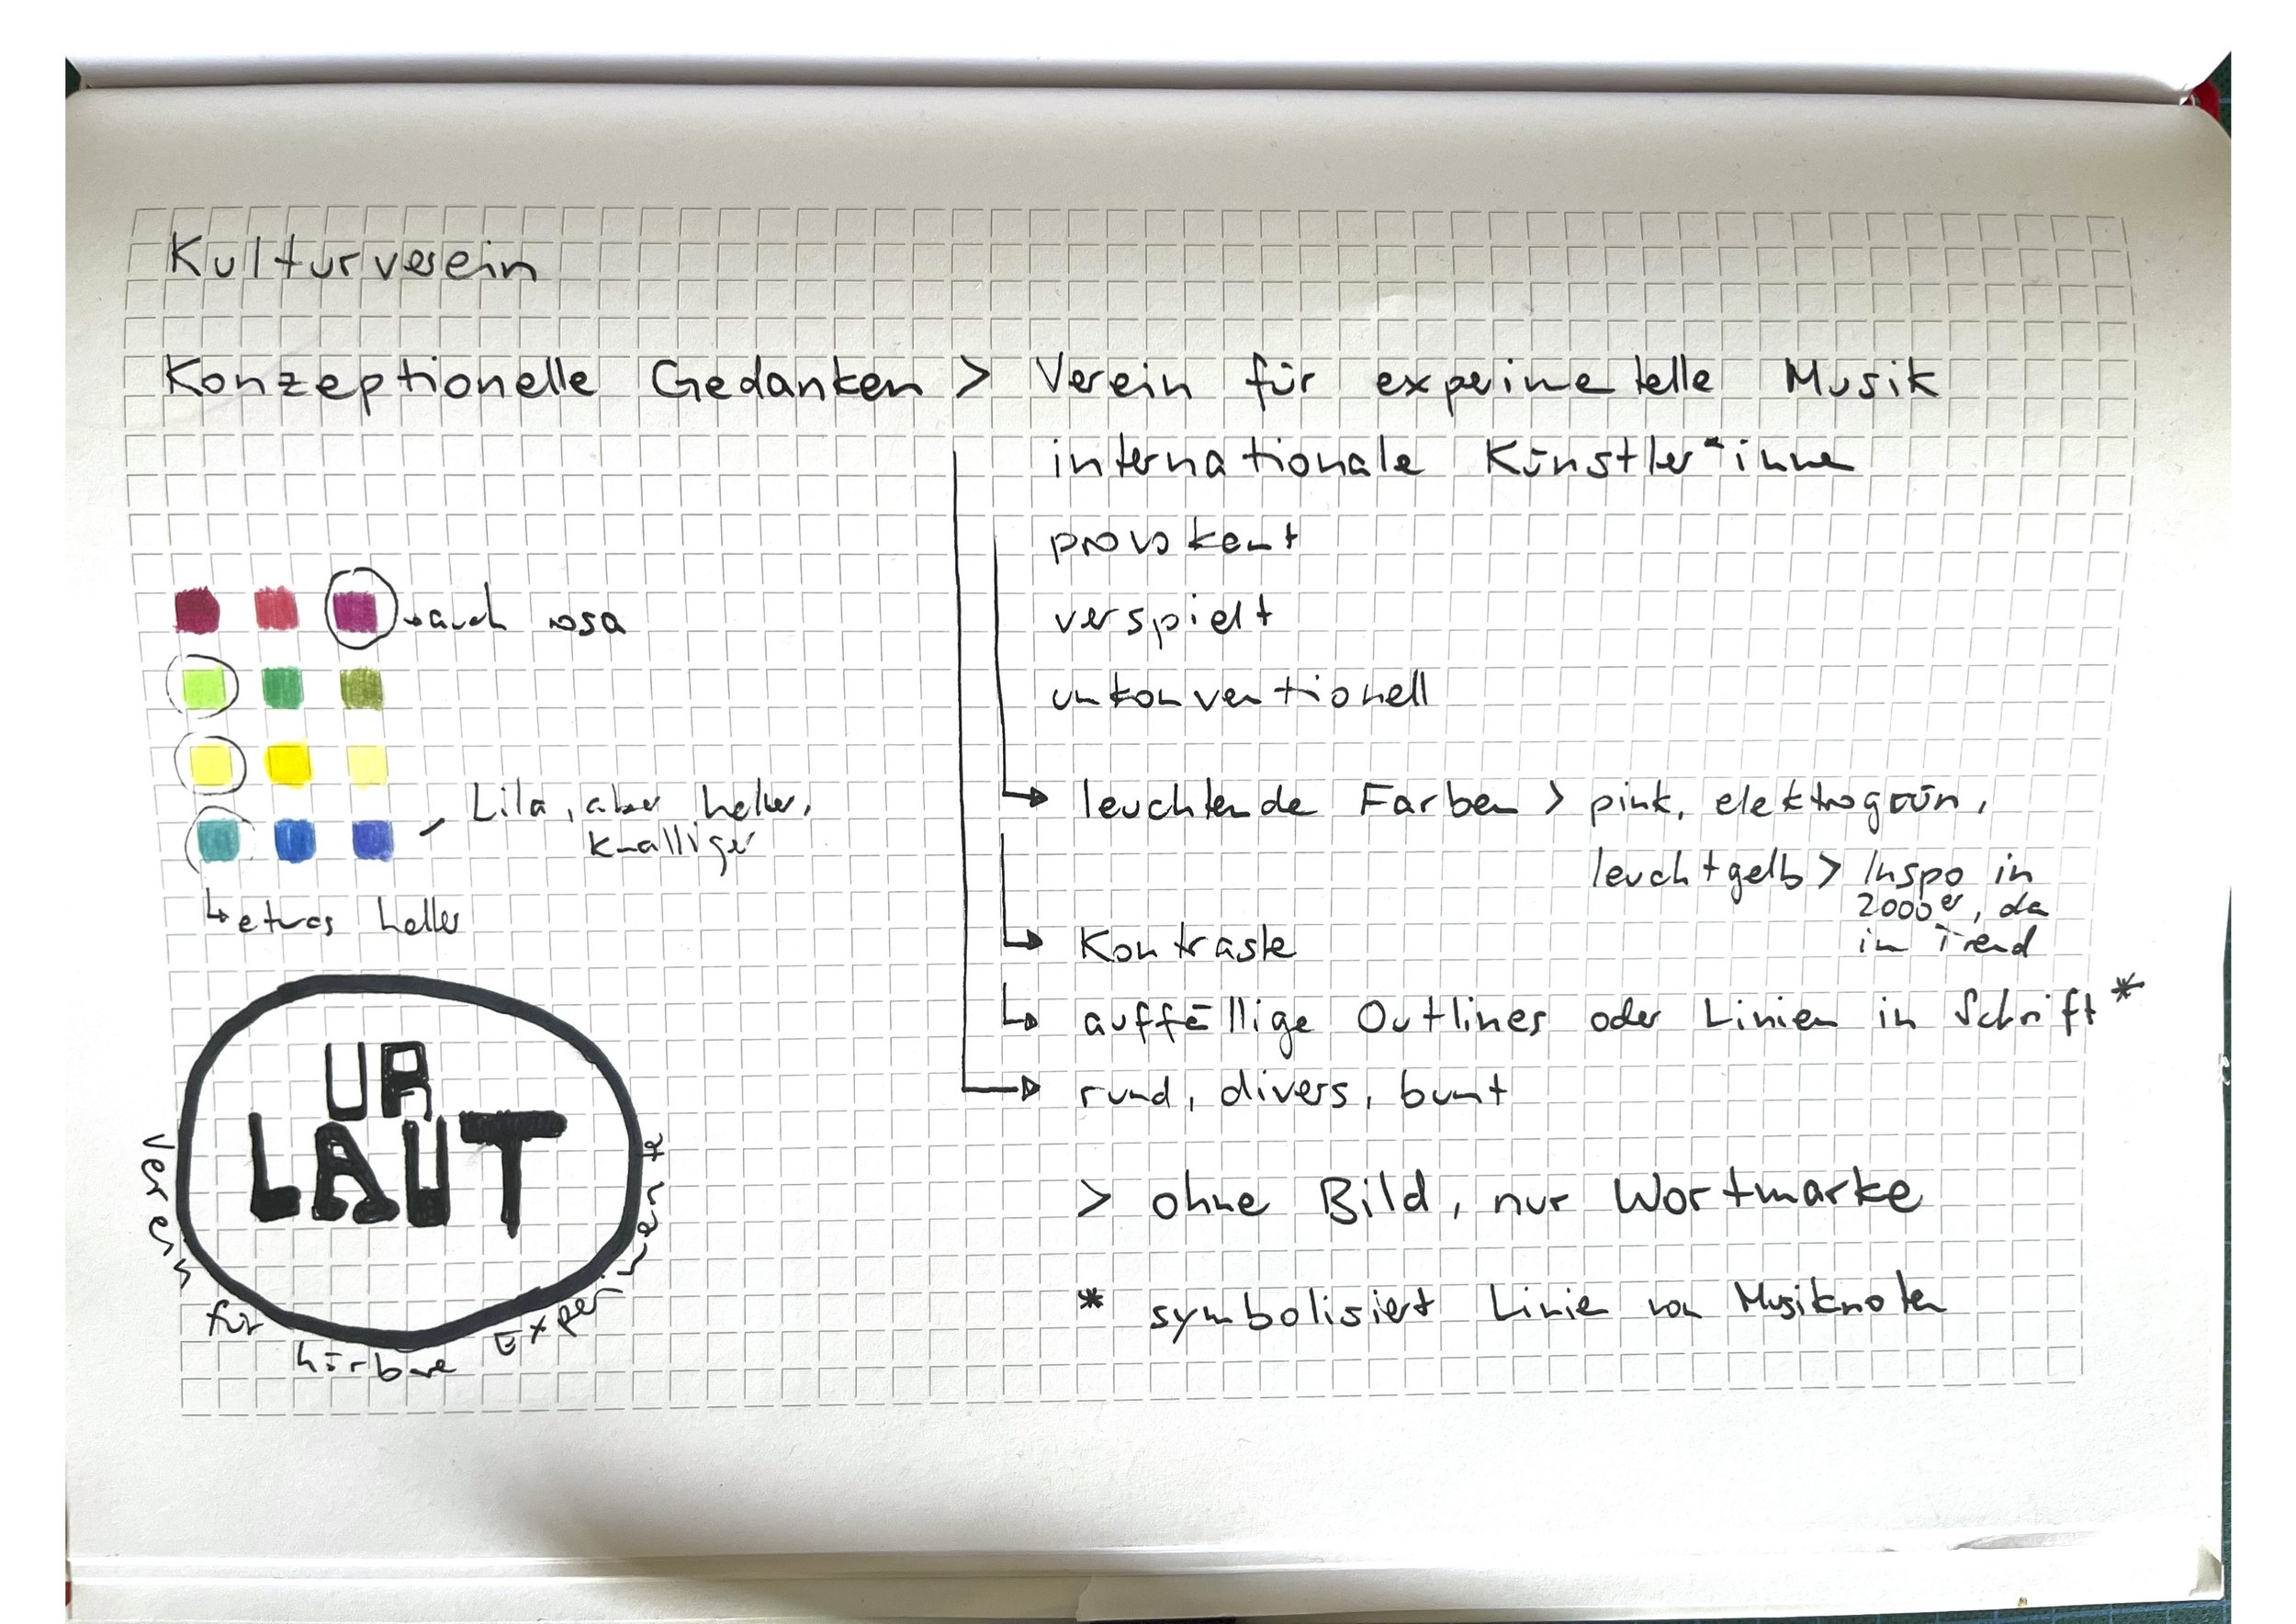 Kulturverein
Konzeptionelle Gedanken > Verein für expeimetelle Musik
internationale Künstler*inne
provokent
verspielt
unkonventionell
→ auch rosa
leuchtende Farben > pink, elektrogrün,
leuchtgelb > Inspo in
2000er, da
im Trend
Lila, aber heller,
knalliger
→ etwas heller
Kontraste
auffällige Outlines oder Linien in Schrift*
rund, divers, bunt
> ohne Bild, nur Wortmarke
* symbolisiert Linie von Musiknoten
UR
LAUT
Verein für hörbare Experimente